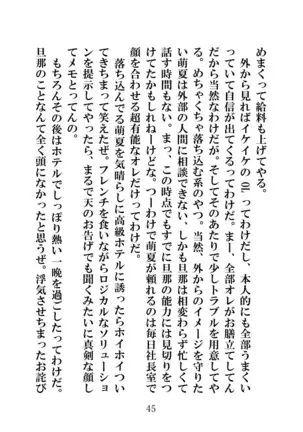 めまくって給料も上げてやる。
　外から見ればイケイケのOLってわけだし、本人的にも全部うまくい
っていて自信が出てくるってわけだ。まー、全部オレがお膳立てしてん
だから当然なわけだが。そしてそのあたりで少しトラブルを用意してや
る。めちゃくちゃ落ち込む系のやつ。当然、外からのイメージを守りた
い萌夏は外部の人間に相談できない、しかも旦那は相変わらず忙しくて
話す時間もない。まっ、この時点でもすでに旦那の能力には見切りをつ
けてたかもしれねーけどな。つーわけで萌夏が頼れるのは毎日社長室で
顔を合わせる超有能なオレだけってわけだ。
　落ち込んでる萌夏を気晴らしに高級ホテルに誘ったらホイホイつい
てきちまって笑えたぜ。フレンチを食いながらロジカルなソリューショ
ンを提示してやったら、まるで天のお告げでも聞くみたいに真剣な顔し
てメモとってんの。
　もちろんその後はホテルでしっぽり熱い一晩を過ごしたってわけだ。
旦那のことなんて全く頭になかったと思うぜ。浮気させちまったお詫び
45